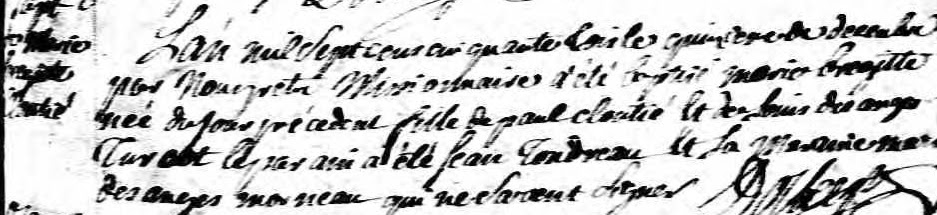 Marie
L'an mil sept cens cinquante trois le quinzieme de decembre
par Nous pretre Missionnaire a été baptisé marie brezitte
née du jour précédent fille de paul cloutié et de louis des anges
Turcot le parain a été Jean Tondreau et la Maraine marie
des anges morneau qui ne savent signer